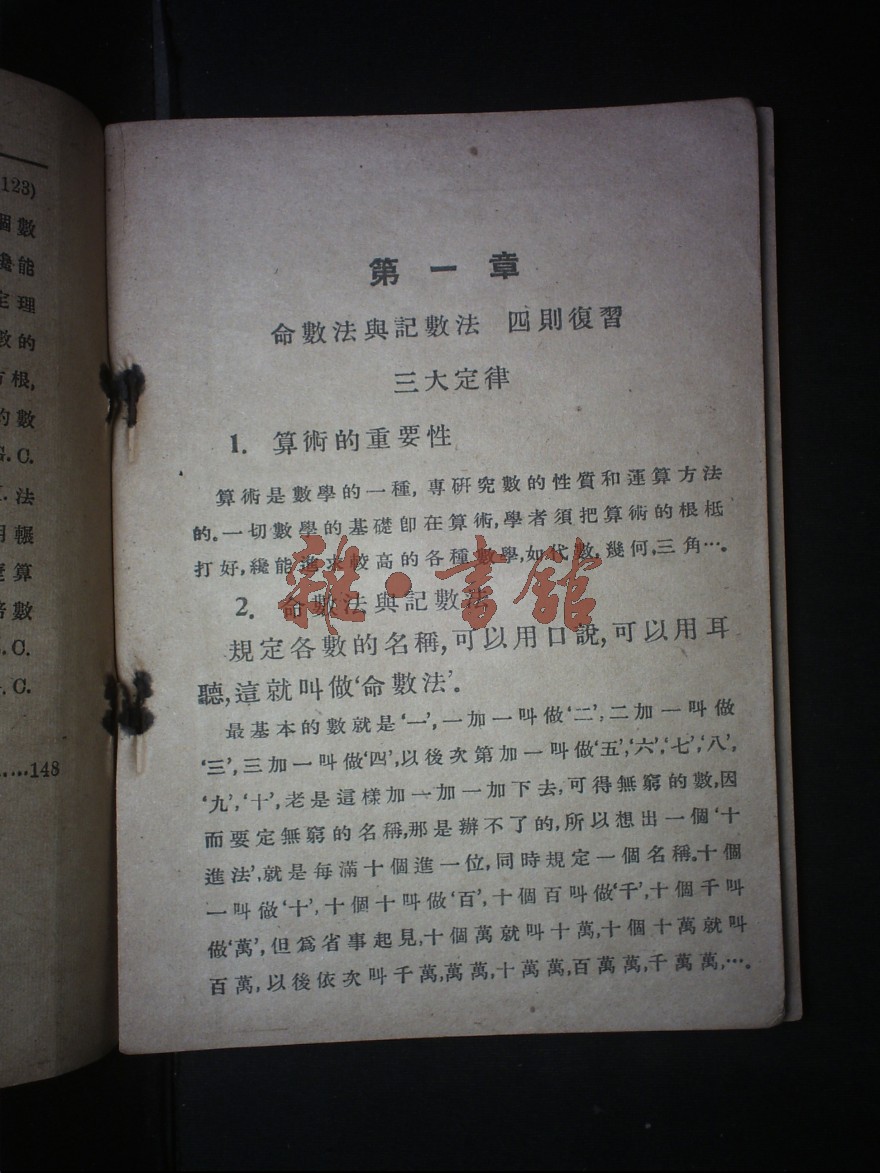 123)
個數
纔能
定理
數的
方根,
的數
G.C.
法
用輾
算
數
.C.
.C.
....148
第一章
命數法與記數法 四則復習
三大定律
1. 算術的重要性
算術是數學的一種,專研究數的性質和運算方法
的。一切數學的基礎卽在算術,學者須把算術的根柢
打好,纔能進求較高的各種數學,如代數,幾何,三角…。
2. 命數法與記數法
規定各數的名稱,可以用口說,可以用耳
聽,這就叫做‘命數法’。
最基本的數就是‘一’,一加一叫做‘二’,二加一叫做
‘三’,三加一叫做‘四’,以後次第加一叫做‘五’,‘六’,‘七’,‘八’,
‘九’,‘十’,老是這樣加一加一加下去,可得無窮的數,因
而要定無窮的名稱,那是辦不了的,所以想出一個‘十
進法’,就是每滿十個進一位,同時規定一個名稱。十個
一叫做‘十’,十個十叫做‘百’,十個百叫做‘千’,十個千叫
做‘萬’,但爲省事起見,十個萬就叫十萬,十個十萬就叫
百萬,以後依次叫千萬,萬萬,十萬萬,百萬萬,千萬萬,…。
雜·書館